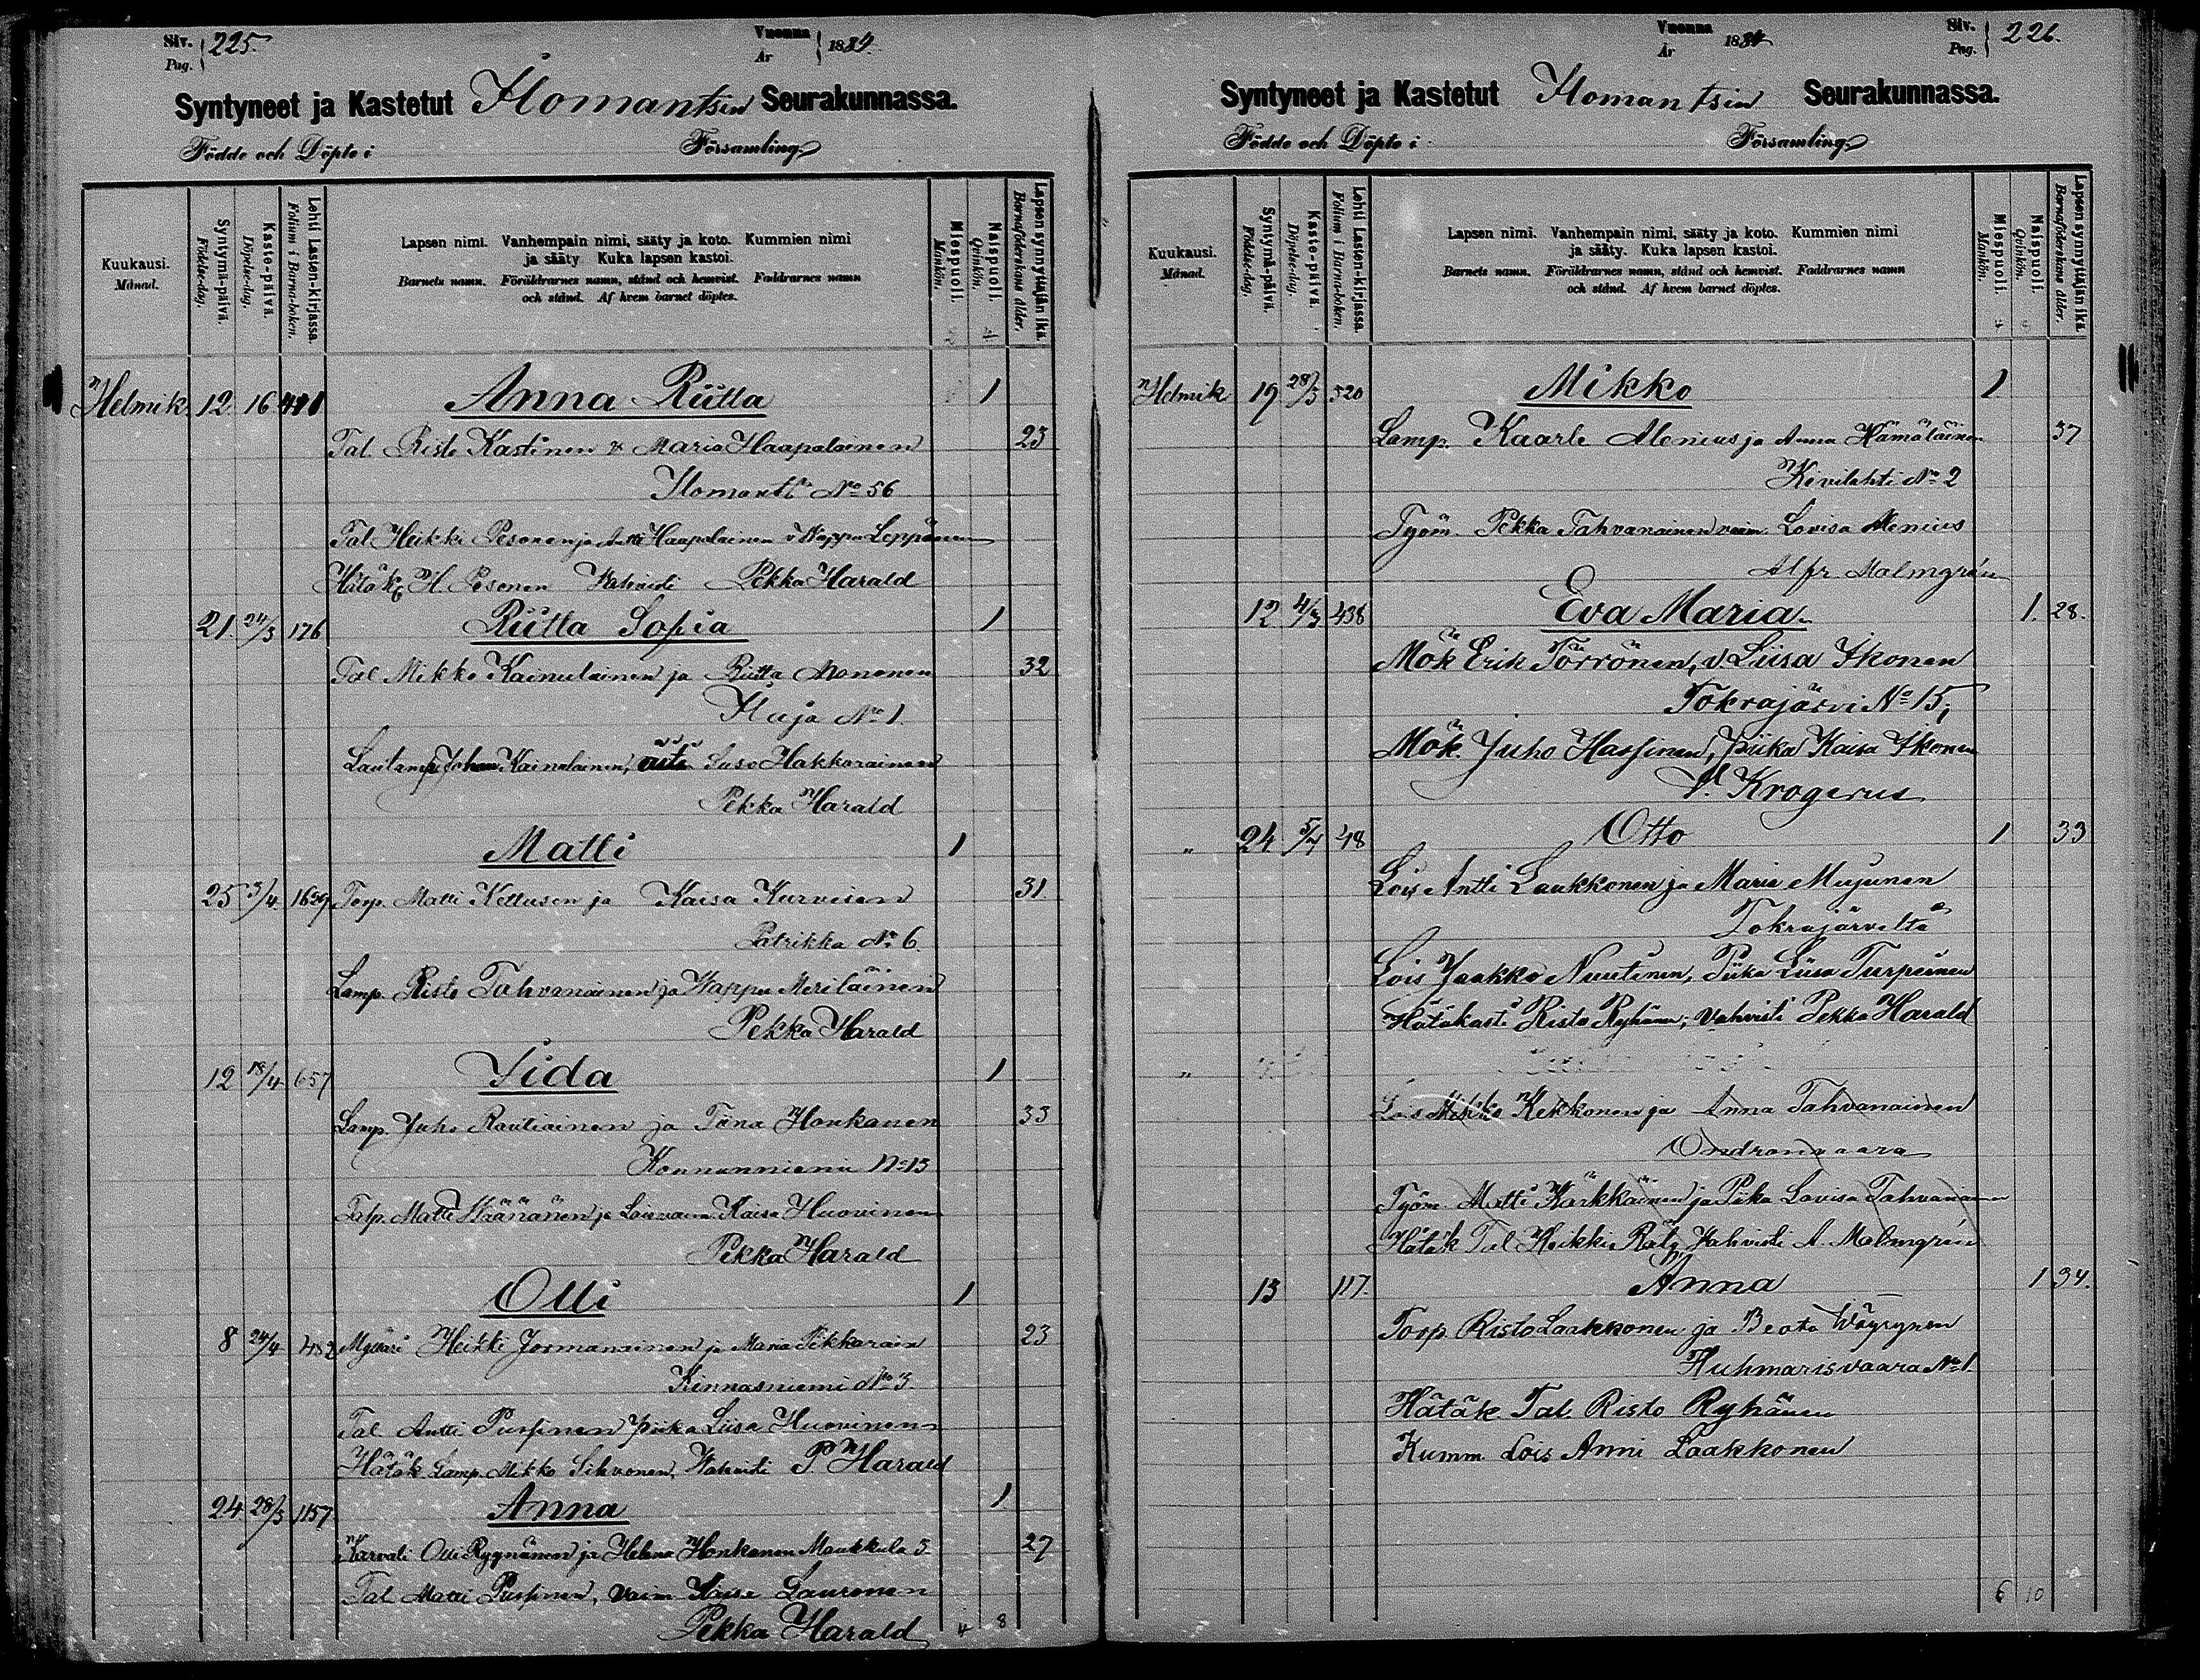 Siv. Pag. 225.
Vuonna År 1884.
Syntyneet ja Kastetut Ilomantsin Seurakunnassa.
Födde och Döpte i Församling
Kuukausi. Månad.
Syntymä-päivä. Födelse-dag.
Kaste-päivä. Döpelse-dag.
Lehti Lasten-kirjassa. Folium i Barna-boken.
Lapsen nimi. Vanhempain nimi, sääty ja koto. Kummien nimi
ja sääty Kuka lapsen kastoi.
Barnets namn. Föräldrarnes namn, stånd och hemvist. Faddrarnes namn
och stånd. Af hvem barnet döptes.
Miespuoli. Mankön.
Naispuoli. Qvinkön.
Lapsen synnyttäjän ikä. Barnaföderskans ålder.
Helmik 12 16 Anna Riitta 1
Tal. Risto Kastinen v Maria Haapalainen 23
Ilomants No 56
Tal Heikki Pesonen ja Antti Haapalainen v Wappu Leppänen
Hätäk H. Pesonen Wahvisti Pekka Harald
21. 24/3 176 Riitta Sofia 1
Tal Mikko Kainulainen ja Riitta Mononen 32
Iluja No 1.
Lautamp Johan Kainulainen, Suso Hakkarainen
Pekka Harald
Matti 1
25 3/4 1659 Torp. Matti Kettusen ja Kaisa Kurvisen 31.
Patrikka No 6.
Lamp. Risto Tahvanainen ja Wappu Meriläinen
Pekka Harald
12 18/4 657 Iida 1
Lamp. Juho Rautiainen ja Tiina Honkanen 33
Konnunniemi No 13
Talp. Matti Väänänen ja Lois vaim Kaisa Huovinen
Pekka Harald
Olli 1
8 24/4 482 Mylläri Heikki Jormanainen ja Maria Pikkarain 23
Kinnasniemi No 3.
Tal Antti Pursinen piika Liisa Huovinen
Hätäk Lamp. Mikko Sihvonen, Wahvisti P Harald
24 28/3 1157 Anna 1
Karvali Olli Ryynänen ja Helena Honkanen Maukkula 3 27
Tal Matti Pursinen, Vaim Kaisa Lauronen
Pekka Harald 4 8
Siv. Pag. 226.
Vuonna År 1884
Syntyneet ja Kastetut Ilomantsin Seurakunnassa.
Födde och Döpte i Församling
Kuukausi. Månad.
Syntymä-päivä. Födelse-dag.
Kaste-päivä. Döpelse-dag.
Lehti Lasten-kirjassa. Folium i Barna-boken.
Lapsen nimi. Vanhempain nimi, sääty ja koto. Kummien nimi
ja sääty. Kuka lapsen kastoi.
Barnets namn. Föräldrarnes namn, stånd och hemvist. Faddrarnes namn
och stånd. Af hvem barnet döptes.
Miespuoli. Mankön.
Naispuoli. Qvinkön.
Lapsen synnyttäjän ikä. Barnaföderskans ålder.
Helmik 19 28/3 520 Mikko 1
Lamp. Kaarle Alenius ja Anna Hämäläinen 37
Kivilahti No 2
Työm. Pekka Tahvanainen vaim. Lovisa Alenius
Alfr Malmgrén
12 4/3 438 Eva Maria 1. 28.
Mök Erik Törrönen, v. Liisa Ikonen
Tokrajärvi No 15;
Mök. Juho Hassinen, piika Kaisa Ikonen
Krogerus
„ 24 5/4 48 Otto 1 33
Lois Antti Laukkonen ja Maria Mujunen
Tokrajärveltä
Lois Jaakko Nuutinen, Piika Liisa Turpeinen
Hätäkasti Risto Ryhänen; Vahvisti Pekka Harald
„
Lois Mikko Kekkonen ja Anna Tahvanainen
Ondronvaara
Työm. Matti Kärkkäinen ja Piika Lovisa Tahvanainen
Hätäk Tal Heikki Räty Vahvisti A. Malmgrén
13 117. Anna 1 34.
Torp. Risto Laakkonen ja Beata Wäyrynen
Huhmarisvaara No 1.
Hätäk. Tal. Risto Ryhänen
Kumm. Lois Anni Laakkonen
6 10